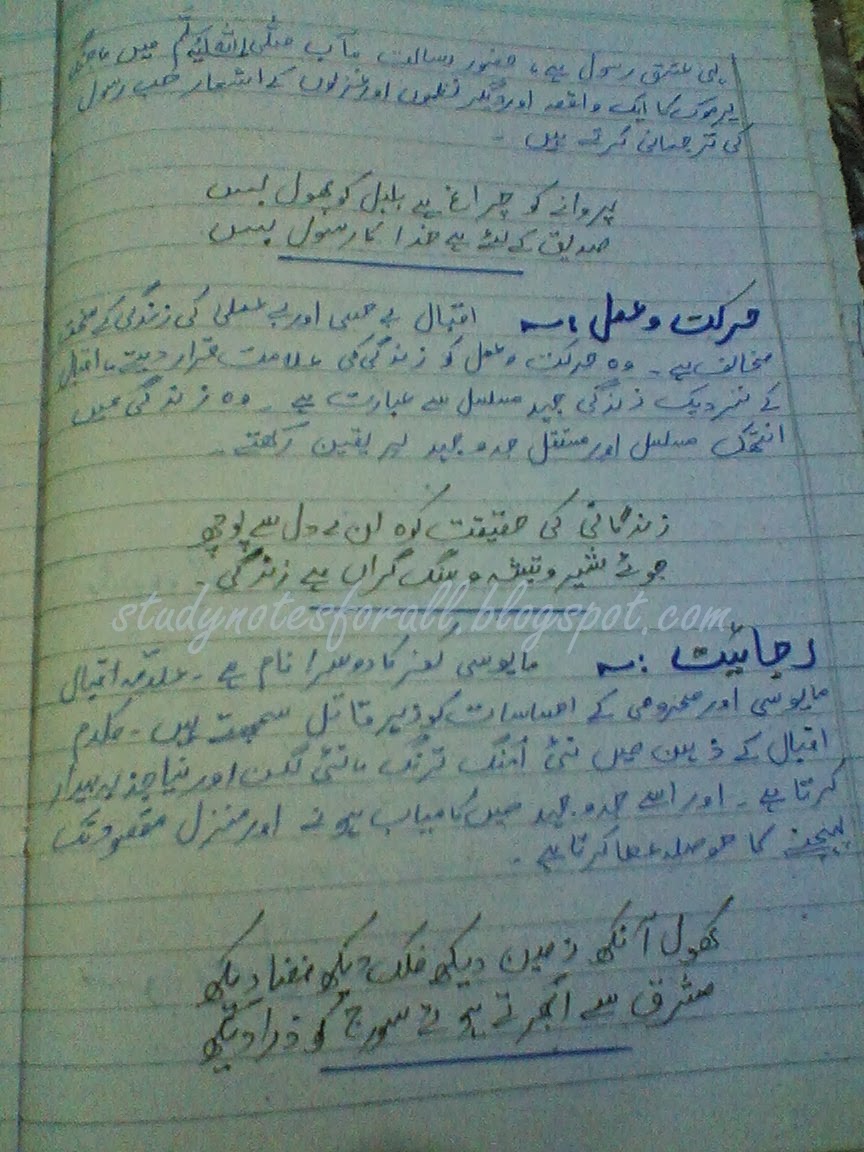 ہی عشق رسول ہے، حضور رسالت مآب صلی اللہ علیہ وآلہ وسلم میں، جنگ
یرموک کا ایک واقعہ اور دیگر نظموں اور غزلوں کے اشعار حب رسول
کی ترجمانی کرتے ہیں ۔
پروانے کو چراغ ہے بلبل کو پھول بس
صدیق کے لئے ہے خدا کا رسول بس
حرکت و عمل :۔ اقبال بے حسی اور بے عملی کی زندگی کے
مخالف ہے ۔ وہ حرکت و عمل کو زندگی کی علامت قرار دیتے ، اقبال
کے نزدیک زندگی جہد مسلسل سے عبارت ہے ۔ وہ زندگی میں
انتھک مسلسل اور مستقل جدوجہد پر یقین رکھتے ۔
زندگانی کی حقیقت کوہ کن کے دل سے پوچھ
جوئے شیر و تیشہ و سنگ گراں ہے زندگی ۔
studynotesforall.blogspot.com
رجائیت :۔ مایوسی کفر کا دوسرا نام ہے ۔ علامہ اقبال
مایوسی اور محرومی کے احساسات کو زہر قاتل سمجھتے ہیں ۔ کلام
اقبال کے ذہین میں نئی اُمنگ ترنگ ، نئی لگن اور نیا جذبہ بیدار
کرتا ہے ۔ اور اسے جدوجہد میں کامیاب ہونے اور منزل مقصود تک
پہنچنے کا حوصلہ عطا کرتا ہے ۔
کھول آنکھ زمین دیکھ فلک دیکھ فضا دیکھ
مشرق سے اُبھرتے ہوئے سورج کو ذرا دیکھ